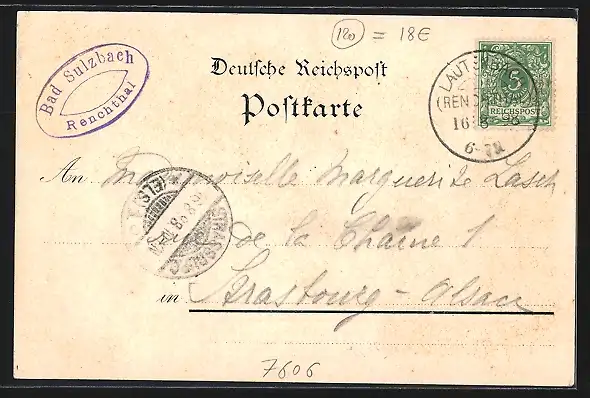 120 = 18€
Bad Sulzbach
Renchthal
Deutsche Reichspost
Postkarte
5
REICHSPOST
LAUT
(REN
16 8
6-7N
An Mademoiselle Marguerite Lasch
STRASSBURG
ELS.
de la Chaîne 1
in Strasbourg - Alsace
7606